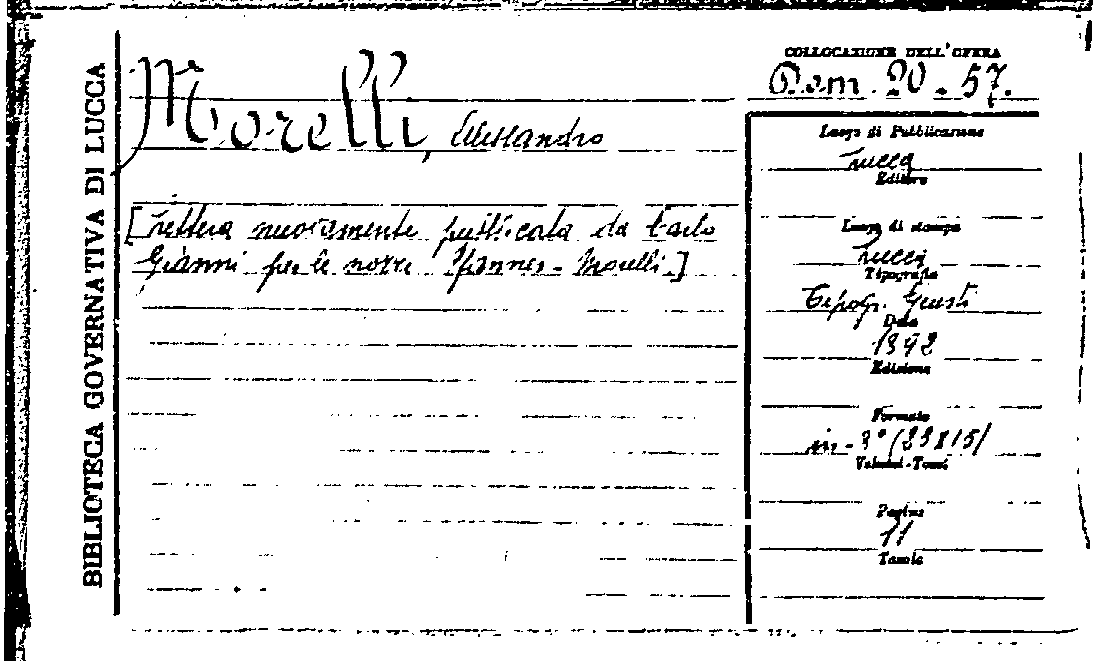 BIBLIOTECA GOVERNATIVA DI LUCCA
Morelli, Alessandro
[Lettera nuovamente pubblicata da Carlo
Gianni per le nozze Morelli.]
COLLOCAZIONE DELL'OPERA
Dom. 20.57.
Luogo di Pubblicazione
Lucca
Editore
Luogo di stampa
Lucca
Tipografia
Tipogr. Giusti
Data
1892
Edizione
Formato
in-8° (23x15)
Volumi-Tomi
Pagine
11
Tavole